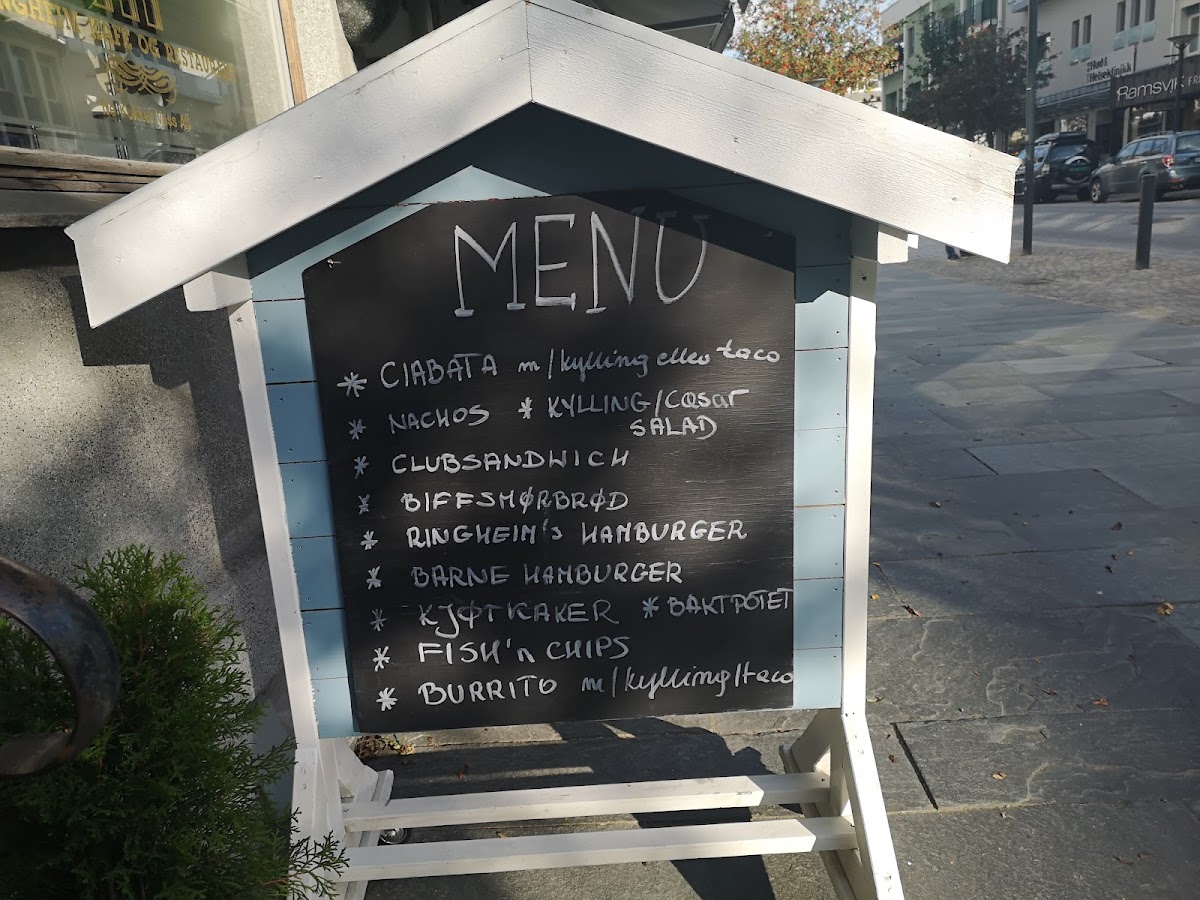 CAFE OG RESTAURANT
Hud &
Helseklinikk
Ramsvik
MENU
* CIABATA m/kylling eller taco
* NACHOS * KYLLING/Cæsar
SALAD
* CLUBSANDWICH
* BIFFSMØRBRØD
* RINGHEIM's HAMBURGER
* BARNE HAMBURGER
* KJØTKAKER * BAKTPOTET
* FISH'n CHIPS
* BURRITO m/kylling/taco